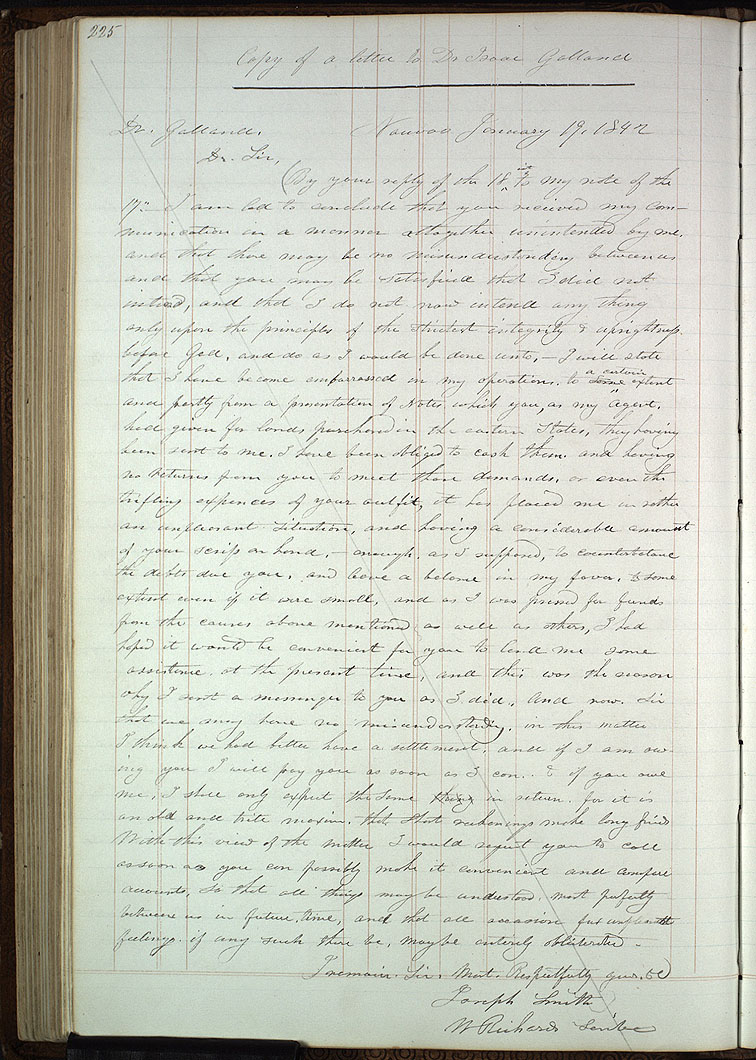 225
Copy of a letter to Dr Isaac Galland
Dr. Galland. Nauvoo January 19. 1842
Dr. Sir,
By your reply of the 18th inst to my note of the
17th I am led to conclude that you recieved my com-
munication in a manner altogether unintended by me.
and that there may be no misunderstanding between us
and that you may be satisfied that I did not
intend, and that I do not now intend any thing
only upon the principles of the strictest integrity & uprightness
before God, and do as I would be done unto, - I will state
that I have become embarrassed in my operations. to a certain some extent
and partly from a presentation of Notes which you, as my agent.
had given for lands purchased in the eastern States, they having
been sent to me. I have been obliged to cash them. and having
no returns from you to meet those demands, or even the
trifling expences of your outfit, it has placed me in rather
an unpleasant situation, and having a considerable amount
of your scrip on hand, - enough, as I supposed, to counterbalance
the debts due you, and leave a balance in my favor, to some
extent even if it were small, and as I was pressed for funds
from the causes above mentioned as well as others, I had
hoped it would be convenient for you to lend me some
assistance, at the present time, and this was the reason
why I sent a messenger to you as I did, and now. Sir
that we may have no misunderstanding. in this matter
I think we had better have a settlement, and if I am ow-
ing you I will pay you as soon as I can. & if you owe
me, I shall only expect the same thing in return. for it is
an old and trite maxim. that short reckonings make long frinds
With this view of the matter I would request you to call
as soon as you can possibly make it convenient and compare
accounts, so that all things may be understood most perfectly
between us in future, time, and that all occasion for unpleasant
feelings. if any such there be, may be entirely obliterated -
I remain. Sir. Most. Respectfully yours. &c
Joseph Smith
W Richards Scribe